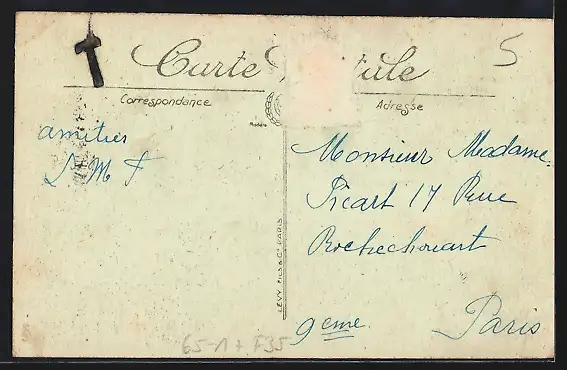 T
5
Carte Postale
Correspondance
Adresse
amitiés
L M F
Monsieur Madame
Picart 17 Rue
Rochechouart
9eme
Paris
LEVY FILS & Cie PARIS
65-1+ F35